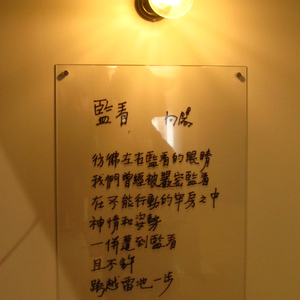 監看 向陽
彷彿左右監看的眼睛
我們曾經被嚴密監看
在不能行動的牢房之中
神情和姿勢
一併遭到監看
且不許
踰越雷池一步